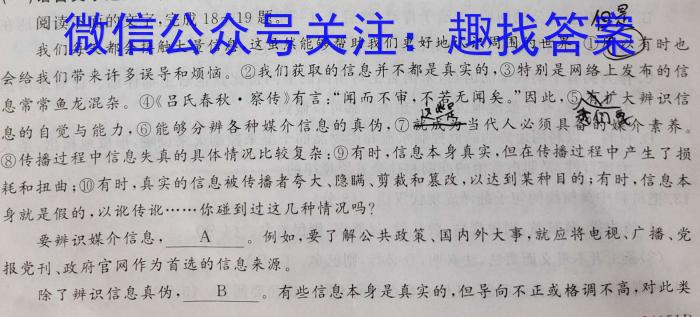 但是
微信公众号关注：趣找答案
阅读下面的文字，完成18～19题。
我们每天都会接触大量信息，这虽然能够帮助我们更好地 周围的世界，① 有时也
会给我们带来许多误导和烦恼。②我们获取的信息并不都是真实的，③特别是网络上发布的信
息常常鱼龙混杂。④《吕氏春秋·察传》有言：“闻而不审，不若无闻矣。”因此，⑤有扩大辨识信
这些是
我们要
息的自觉与能力，⑥能够分辨各种媒介信息的真伪，⑦就成为当代人必须具备的媒介素养。
⑧传播过程中信息失真的具体情况比较复杂：⑨有时，信息本身真实，但在传播过程中产生了损
耗和扭曲；⑩有时，真实的信息被传播者夸大、隐瞒、剪裁和篡改，以达到某种目的；有时，信息本
身就是假的，以讹传讹……你碰到过这几种情况吗？
要辨识媒介信息，A。例如，要了解公共政策、国内外大事，就应将电视、广播、党
报党刊、政府官网作为首选的信息来源。
除了辨识信息真伪，B。有些信息本身是真实的，但导向不正或格调不高，对此类